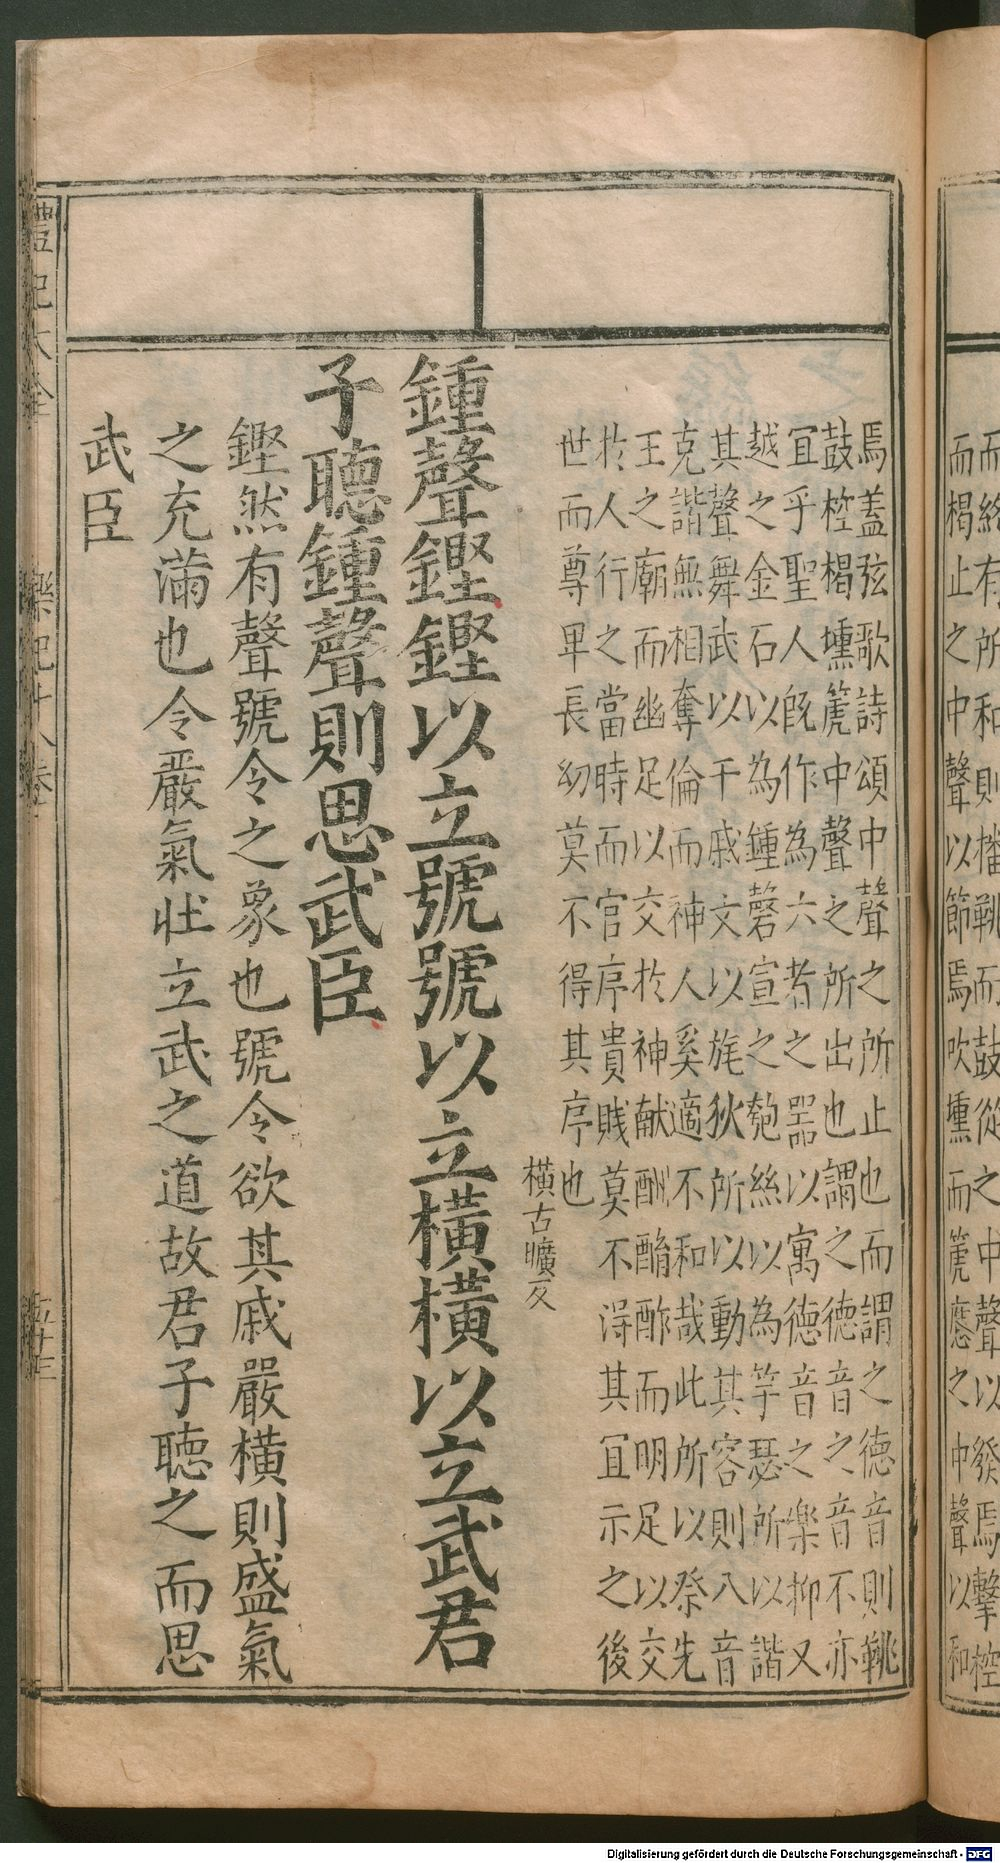 而終有所和則播鞉而鼓從之中聲以發焉擊椌
而楬止之中聲以節焉吹壎而箎應之中聲以和
焉蓋弦歌詩頌中聲之所止也而謂之德音則鞉
鼓椌楬壎箎中聲之所出也謂之德音之音不亦
宜乎聖人既作為六者之器以寓德音之樂抑又
越之金石以為鍾磬宣之匏絲以為竽瑟所以諧
其聲舞武以干戚文以旄狄所以動其容則八音
克諧無相奪倫而神人奚適不和哉此所以祭先
王之廟而幽足以交於神献酬酳酢而明足以交
於人行之當時而官序貴賤莫不得其宜示之後
世而尊卑長幼莫不得其序也
橫古曠反
鍾聲鏗鏗以立號號以立橫橫以立武君
子聽鍾聲則思武臣
鏗然有聲號令之象也號令欲其戚嚴橫則盛氣
之充滿也令嚴氣壯立武之道故君子聽之而思
武臣
禮記大全
樂記十八卷
五十三
Digitalisierung gefördert durch die Deutsche Forschungsgemeinschaft - DFG